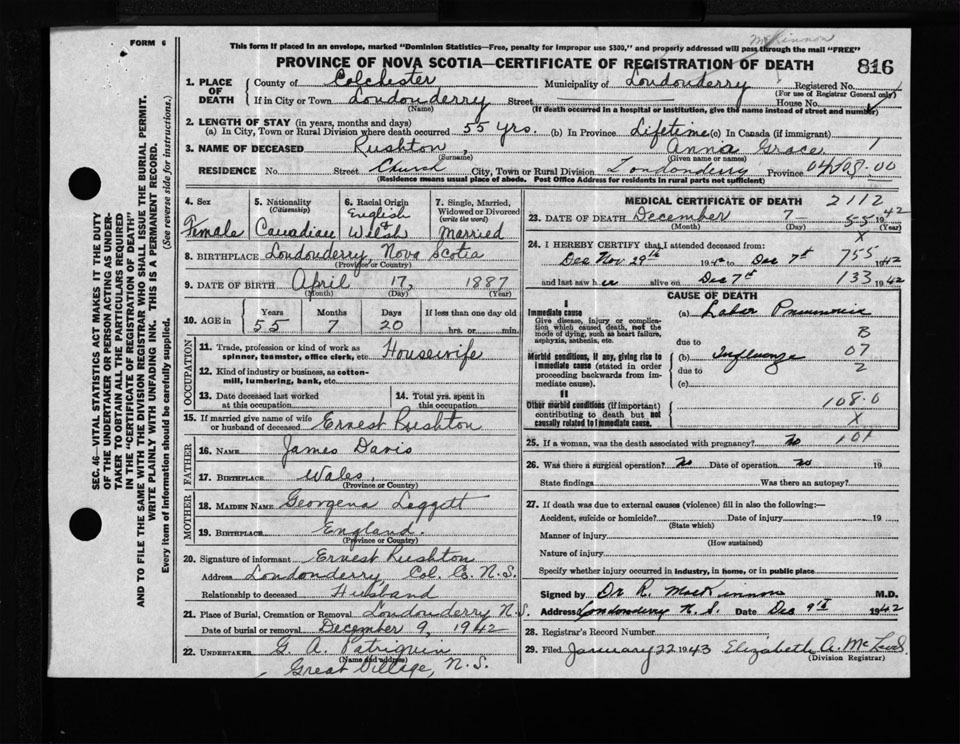 FORM 6
This form if placed in an envelope, marked "Dominion Statistics—Free, penalty for improper use $300," and properly addressed will pass through the mail "FREE"
McKinnon
PROVINCE OF NOVA SCOTIA—CERTIFICATE OF REGISTRATION OF DEATH
816
SEC. 46—VITAL STATISTICS ACT MAKES IT THE DUTY
OF THE UNDERTAKER OR PERSON ACTING AS UNDER-
TAKER TO OBTAIN ALL THE PARTICULARS REQUIRED
IN THE "CERTIFICATE OF REGISTRATION OF DEATH"
AND TO FILE THE SAME WITH THE DIVISION REGISTRAR WHO SHALL ISSUE THE BURIAL PERMIT.
WRITE PLAINLY WITH UNFADING INK. THIS IS A PERMANENT RECORD.
Every item of information should be carefully supplied. (See reverse side for instructions.)
1. PLACE OF DEATH County of Colchester Municipality of Londonderry Registered No.
(For use of Registrar General only)
If in City or Town Londonderry Street House No.
(Name) (If death occurred in a hospital or institution, give the name instead of street and number)
2. LENGTH OF STAY (in years, months and days)
(a) In City, Town or Rural Division where death occurred 55 yrs. (b) In Province Lifetime (c) In Canada (if immigrant)
3. NAME OF DECEASED Rushton, Anna Grace 1
(Surname) (Given name or names)
RESIDENCE No. Street Church City, Town or Rural Division Londonderry Province 04/08-00
(Residence means usual place of abode. Post Office Address for residents in rural parts not sufficient)
4. Sex Female
5. Nationality (Citizenship) Canadian
6. Racial Origin English & Welsh
7. Single, Married, Widowed or Divorced (write the word) Married
8. BIRTHPLACE Londonderry, Nova Scotia
(Province or Country)
9. DATE OF BIRTH April 17, 1887
(Month) (Day) (Year)
10. AGE in Years Months Days If less than one day old
55 7 20 hrs. or min.
OCCUPATION
11. Trade, profession or kind of work as spinner, teamster, office clerk, etc. Housewife
12. Kind of industry or business, as cotton-mill, lumbering, bank, etc.
13. Date deceased last worked at this occupation
14. Total yrs. spent in this occupation
15. If married give name of wife or husband of deceased Ernest Rushton
FATHER
16. NAME James Davis
17. BIRTHPLACE Wales,
(Province or Country)
MOTHER
18. MAIDEN NAME Georgena Leggett
19. BIRTHPLACE England.
(Province or Country)
20. Signature of informant Ernest Rushton
Address Londonderry Col. Co. N.S.
Relationship to deceased Husband
21. Place of Burial, Cremation or Removal Londonderry N.S.
Date of burial or removal December 9, 1942
22. UNDERTAKER G. A. Patriquin
(Name and address)
Great Village, N.S.
MEDICAL CERTIFICATE OF DEATH 2112
23. DATE OF DEATH December 7- 1942
55
(Month) (Day)
X
24. I HEREBY CERTIFY that I attended deceased from:
Dec Nov. 29th 194 to Dec 7th 1942
755
and last saw her alive on Dec 7th 1942
133
CAUSE OF DEATH
I
Immediate cause (a) Lobar Pneumonia
Give disease, injury or complication which caused death, not the mode of dying, such as heart failure, asphyxia, asthenia, etc.
due to B
Morbid conditions, if any, giving rise to immediate cause (stated in order proceeding backwards from immediate cause).
(b) Influenza 07
due to 2
(c)
II
Other morbid conditions (if important) contributing to death but not causally related to immediate cause.
108-0
X
25. If a woman, was the death associated with pregnancy? No 101
26. Was there a surgical operation? No Date of operation no 19
State findings Was there an autopsy?
27. If death was due to external causes (violence) fill in also the following:—
Accident, suicide or homicide? Date of injury 19
(State which)
Manner of injury
(How sustained)
Nature of injury
Specify whether injury occurred in industry, in home, or in public place
Signed by Dr R. MacKinnon M.D.
Address Londonderry N.S. Date Dec 9th 1942
28. Registrar's Record Number
29. Filed January 22 1943 Elizabeth A.
(Division Registrar)